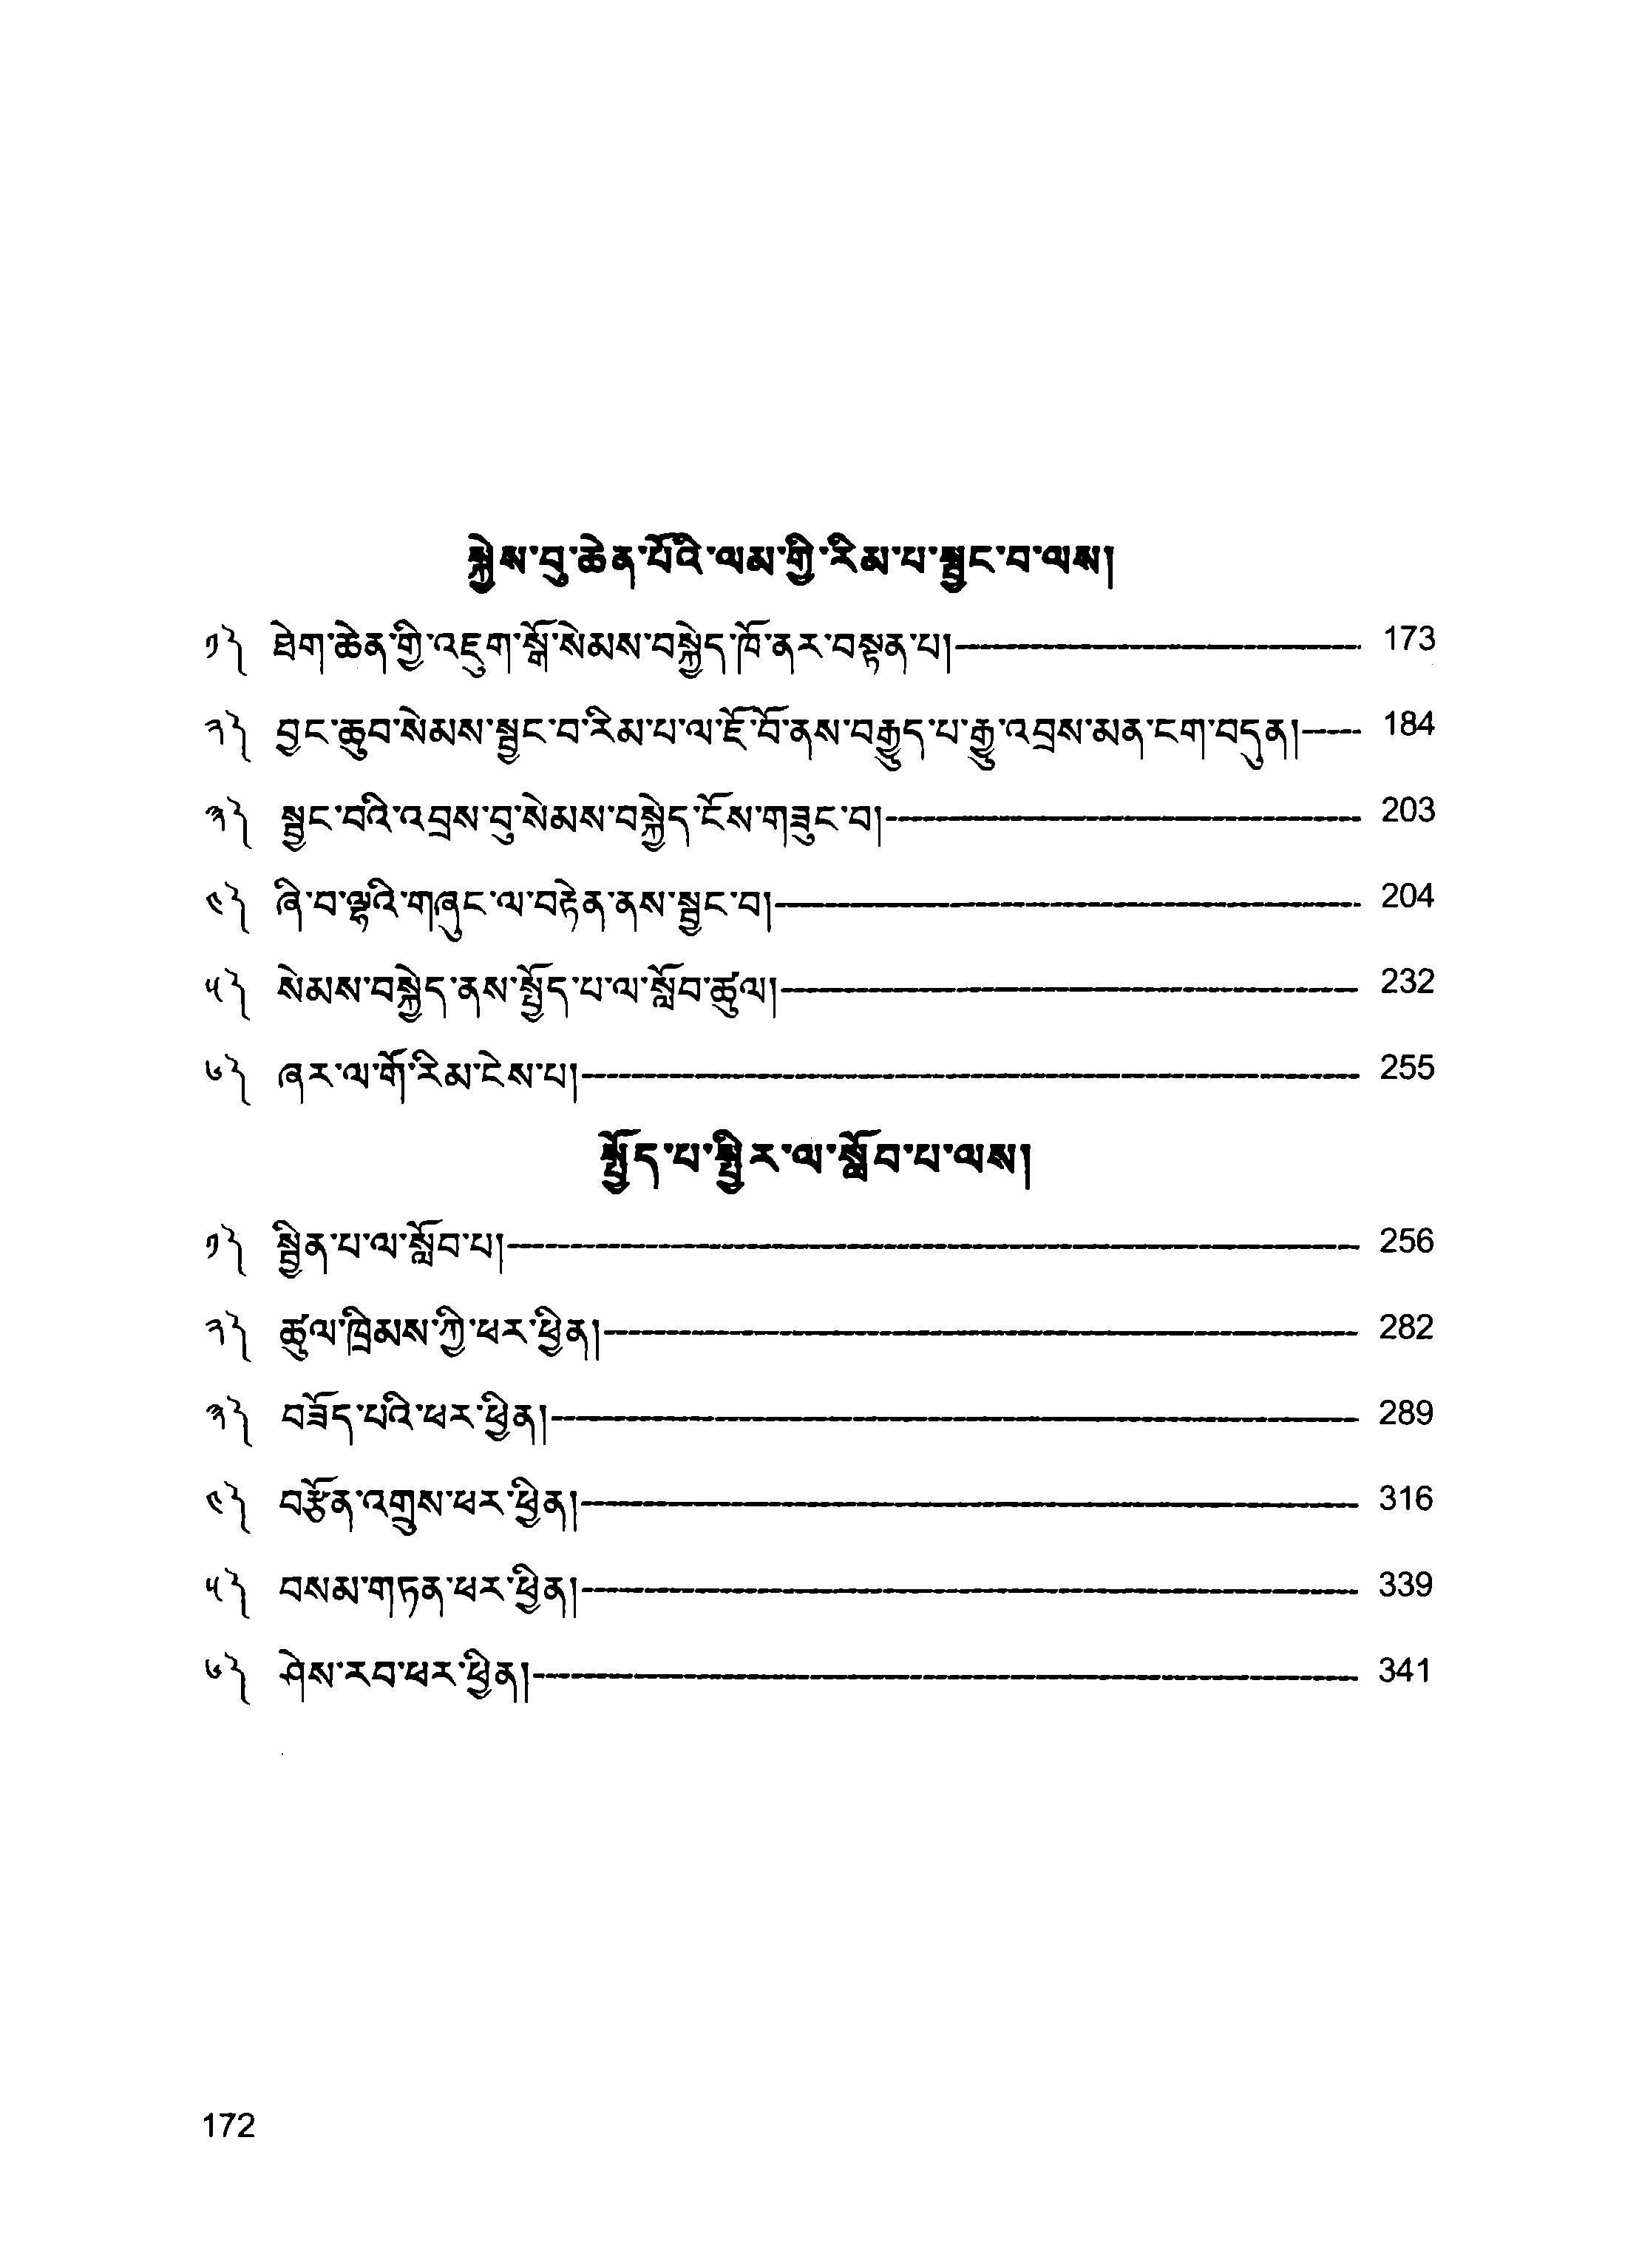 སྐྱེས་བུ་ཆེན་པོའི་ལམ་གྱི་རིམ་པ་སྦྱང་བ་ལས།
༡༽ ཐེག་ཆེན་གྱི་འཇུག་སྒོ་སེམས་བསྐྱེད་ཁོ་ནར་བསྟན་པ། 173
༢༽ བྱང་ཆུབ་སེམས་སྦྱང་བ་རིམ་པ་ལ་ཇོ་བོ་ནས་བརྒྱུད་པ་རྒྱུ་འབྲས་མན་ངག་བདུན། 184
༣༽ སྦྱང་བའི་འབྲས་བུ་སེམས་བསྐྱེད་ངོས་གཟུང་བ། 203
༤༽ ཞི་བ་ལྷའི་གཞུང་ལ་བརྟེན་ནས་སྦྱང་བ། 204
༥༽ སེམས་བསྐྱེད་ནས་སྤྱོད་པ་ལ་སློབ་ཚུལ། 232
༦༽ ཞར་ལ་གོ་རིམ་ངེས་པ། 255
སྤྱོད་པ་སྤྱིར་ལ་སློབ་པ་ལས།
༡༽ སྦྱིན་པ་ལ་སློབ་པ། 256
༢༽ ཚུལ་ཁྲིམས་ཀྱི་ཕར་ཕྱིན། 282
༣༽ བཟོད་པའི་ཕར་ཕྱིན། 289
༤༽ བརྩོན་འགྲུས་ཕར་ཕྱིན། 316
༥༽ བསམ་གཏན་ཕར་ཕྱིན། 339
༦༽ ཤེས་རབ་ཕར་ཕྱིན། 341
172